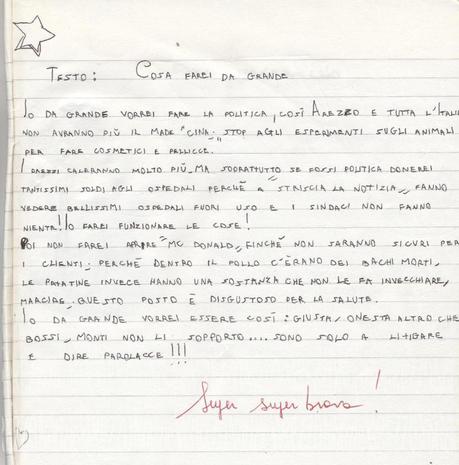 TESTO: COSA FAREI DA GRANDE
IO DA GRANDE VORREI FARE LA POLITICA, COSÌ AREZZO E TUTTA L'ITALI
NON AVRANNO PIÙ IL MADE "CINA." STOP AGLI ESPERIMENTI SUGLI ANIMALI
PER FARE COSMETICI E PELLICCE.
I PREZZI CALERANNO MOLTO PIÙ, MA SOPRATTUTTO SE FOSSI POLITICA DONEREI
TANTISSIMI SOLDI AGLI OSPEDALI PERCHÈ A "STRISCIA LA NOTIZIA" FANNO
VEDERE BELLISSIMI OSPEDALI FUORI USO E I SINDACI NON FANNO
NIENTA! IO FAREI FUNZIONARE LE COSE!
POI NON FAREI APRIRE "MC DONALD", FINCHÈ NON SARANNO SICURI PER
I CLIENTI. PERCHÈ DENTRO IL POLLO C'ERANO DEI BACHI MORTI,
LE PATATINE INVECE HANNO UNA SOSTANZA CHE NON LE FA INVECCHIARE,
MARCIRE. QUESTO POSTO È DISGUSTOSO PER LA SALUTE.
IO DA GRANDE VORREI ESSERE COSÌ: GIUSTA, ONESTA ALTRO CHE
BOSSI, MONTI NON LI SOPPORTO.... SONO SOLO A LITIGARE
E DIRE PAROLACCE !!!
Super super brava!